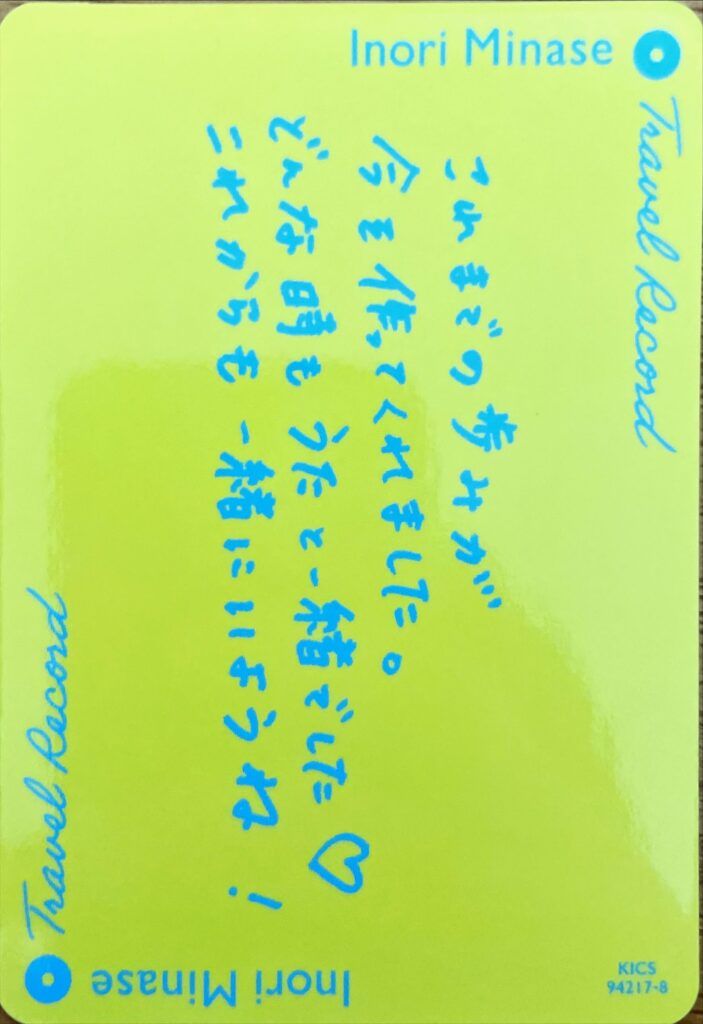 Inori Minase
Travel Record
これまでの歩みが
今を作ってくれました。
どんな時もうたと一緒でした♡
これからも一緒にいようね!
Travel Record
Inori Minase
KICS
94217-8